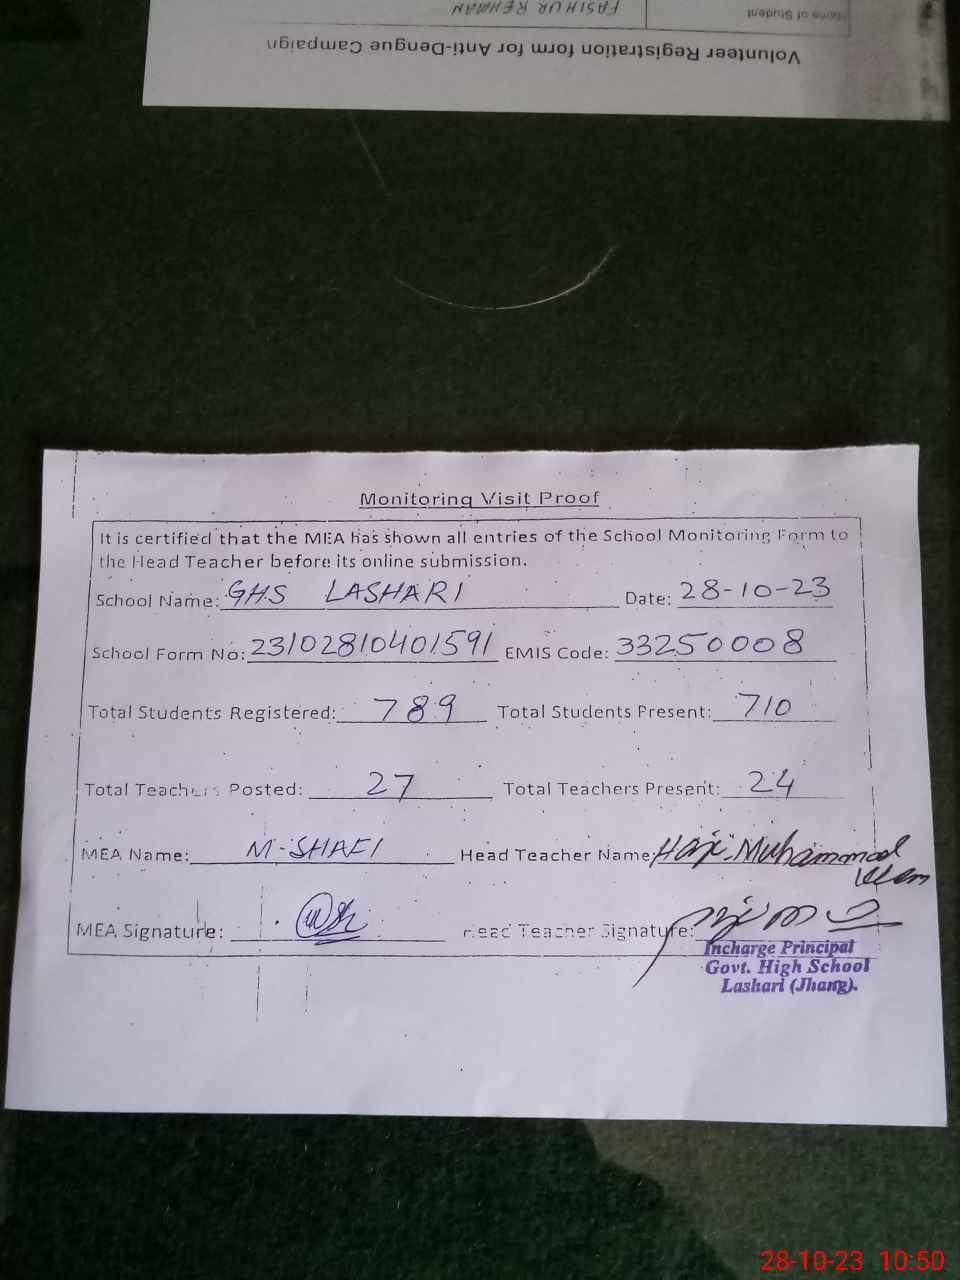 Name of Student FASIHUR REHMAN
Volunteer Registration form for Anti-Dengue Campaign
Monitoring Visit Proof
It is certified that the MEA has shown all entries of the School Monitoring Form to
the Head Teacher before its online submission.
School Name: GHS LASHARI Date: 28-10-23
School Form No: 23102810401591 EMIS Code: 33250008
Total Students Registered: 789 Total Students Present: 710
Total Teachers Posted: 27 Total Teachers Present: 24
MEA Name: M-SHAFI Head Teacher Name Haji Muhammad
MEA Signature: Head Teacher Signature:
Incharge Principal
Govt. High School
Lashari (Jhang).
28-10-23 10:50